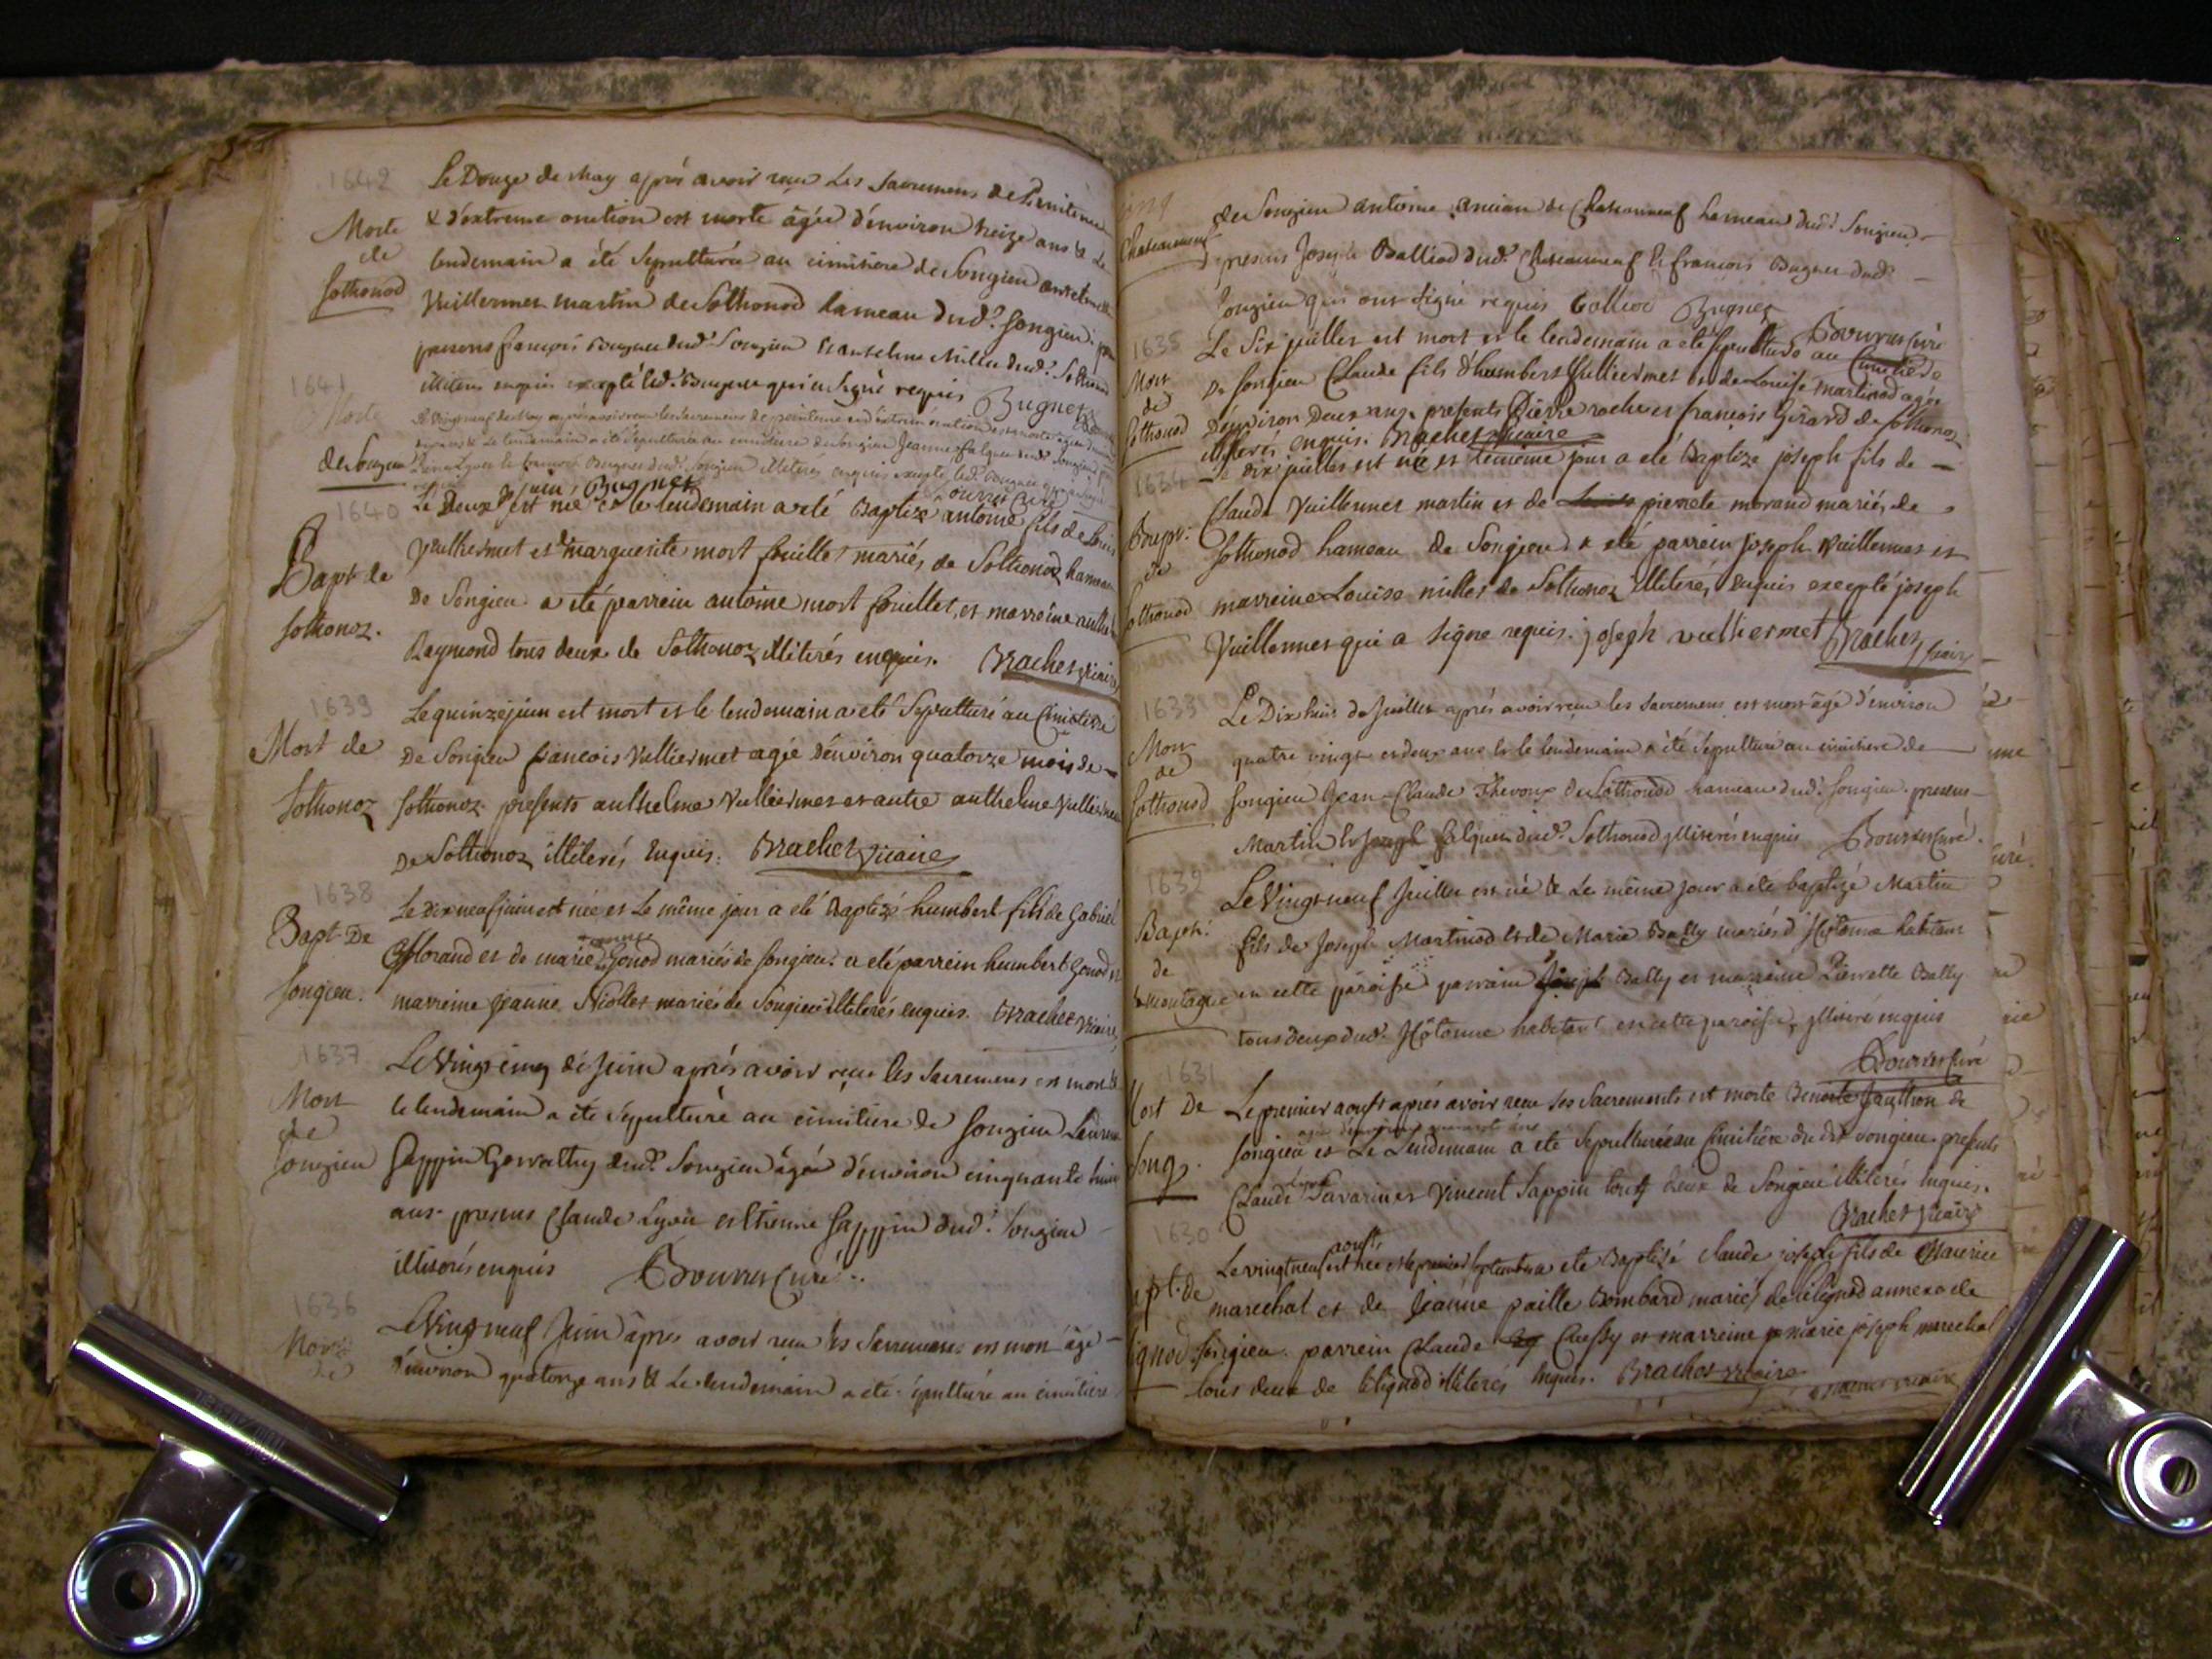 1642
Le Douze de May après avoir reçu Les Sacremens de Penitence
Morte de Sothonod
& d'extreme onction est morte âgée d'environ treize ans & Le
lendemain a été Sepulturée au cimitiere de Songieu
Vuillermet martin de Sothonod hameau dud.t Songieu
presens françois Bugnet dud.t Songieu Millet dud.t Sothonod
illiteres enquis excepté led.t Bugnet qui a signé requis Bugnet
1641
Morte de Songieu
Le Vingt neuf de May après avoir reçu les sacremens de penitence et d'extreme onction est morte agée
ans & Le lendemain a été sepulturée au cimitiere de Songieu Jeanne falquet dud.t Songieu
Lyvet & francois Bugnet dud.t Songieu illiterés enquis excepté led.t Bugnet
Bugnet Bourret Curé
1640
Bapt de Sothonoz.
Le Deux juin est né & le lendemain a eté Baptizé antoine fils de Louis
Vulliermet et de marguerite mort fouillet mariés de Sothonoz hameau
De Songieu a été parrein antoine mort fouillet, et marreine
Raymond tous deux de Sothonoz illiterés enquis. Brachet vicaire
1639
Mort de Sothonoz
Le quinze juin est mort et le lendemain a eté Sepulturé au Cimitiere
De Songieu francois Vulliermet agé d'environ quatorze mois de
Sothonoz. presents anthelme Vulliermet et autre anthelme Vulliermet
De Sothonoz illiterés Enquis. Brachet vicaire
1638
Bapt De Songieu.
Le dix neuf juin est née et Le même jour a eté Baptizé humbert fils de Gabriel
Morand et de marie Gonod mariés de Songieu. a eté parrein humbert Gonod et
marreine jeanne Niollet mariés de Songieu illiterés enquis. Brachet vicaire
1637
Mort de Songieu
Le Vingt cinq de Juin après avoir reçu les Sacremens est mort &
le lendemain a été sepulturé au cimitiere de Songieu Laurent
Sappin Gervathy dud.t Songieu âgé d'environ cinquante huit
ans. presens Claude Lyvet et Etienne Sappin dud.t Songieu
illiterés enquis Bourret Curé.
1636
Mort de
Le Vingt neuf Juin après avoir reçu les Sacremens est mort âgé
d'environ quatorze ans & Le lendemain a été sepulturé au cimitiere
Song
Chateauneuf
de Songieu antoine Ancian de Chateauneuf hameau dud.t Songieu
presens Joseph Balliod dud.t Chateauneuf & francois Bugnet dud.t
Songieu qui ont signé requis Bollioz Bugnet
Bourret Curé
1635
Mort de Sothonod
Le Six juillet est mort et le lendemain a eté sepulturé au Cimitiere
De Songieu Claude fils d'humbert Vulliermet et de Louise martinod agé
D'environ Deux ans. presents Pierre roche et françois Girard de Sothonoz
illiterés enquis. Brachet vicaire
1634
Bapt. de Sothonod
Le dix juillet est né et le même jour a eté Baptizé joseph fils de
Claude Vuillermet martin et de pierrete morand mariés de
Sothonod hameau de Songieu a eté parrein Joseph Vuillermet et
marreine Louise millet de Sothonoz illiterés enquis excepté joseph
Vuillermet qui a signé requis. joseph vulliermet Brachet vicaire
1633
Mort de Sothonod
Le Dix huit de Juillet après avoir reçu les Sacremens est mort âgé d'environ
quatre vingt et deux ans & le lendemain a été Sepulturé au cimitiere de
Songieu Jean-Claude Thevoux de Sothonod hameau dud.t Songieu. presens
Martin & Joseph falquet dud.t Sothonod illiterés enquis Bourret Curé.
1632
Bapt: de montagne
Le Vingt neuf Juillet est né & Le même jour a été baptizé Martin
fils de Joseph Martinod & de Marie Bally mariés d'Hotonne habitant
en cette paroisse parrain Joseph Bally et marraine Pierrette Bally
tous deux dud.t Hotonne habitant en cette paroisse, illiterés enquis
Bourret Curé
1631
Mort De Song.
Le premier aoust après avoir reçu ses Sacrements est morte Benoite Jauthon de
agée d'environ quarante ans
Songieu et Le Lendemain a eté Sepulturée au Cimitière du dit Songieu presents
Claude Lyvet Savarin et Vincent Sappin tous deux de Songieu illiterés Enquis.
Brachet vicaire
1630
Bapt. de lignod
aoust
Le vingt neuf est née et le premier septembre a eté Baptizé Claude joseph fils de Maurice
marechal et de jeanne paille Bombard mariés de lilignod annexe de
Songieu. parrein Claude Cuessy et marreine marie joseph marechal
tous deux de lilignod illiterés Enquis. Brachet vicaire
Brachet vicaire